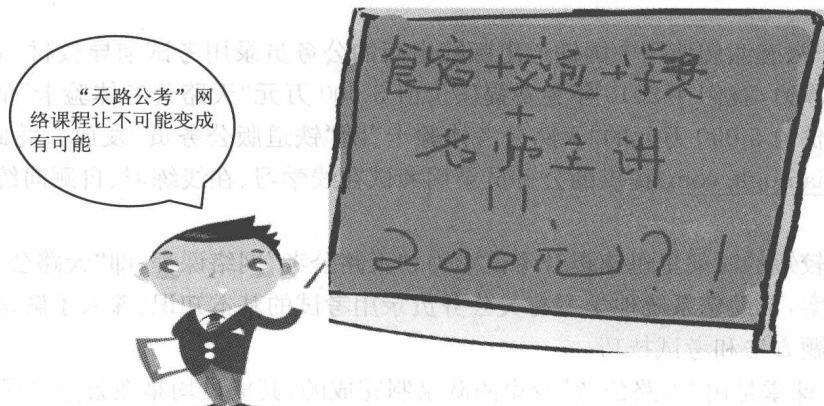 “天路公考”网
络课程让不可能变成
有可能
食宿+交通+学费
+
名师主讲
=
200元?!